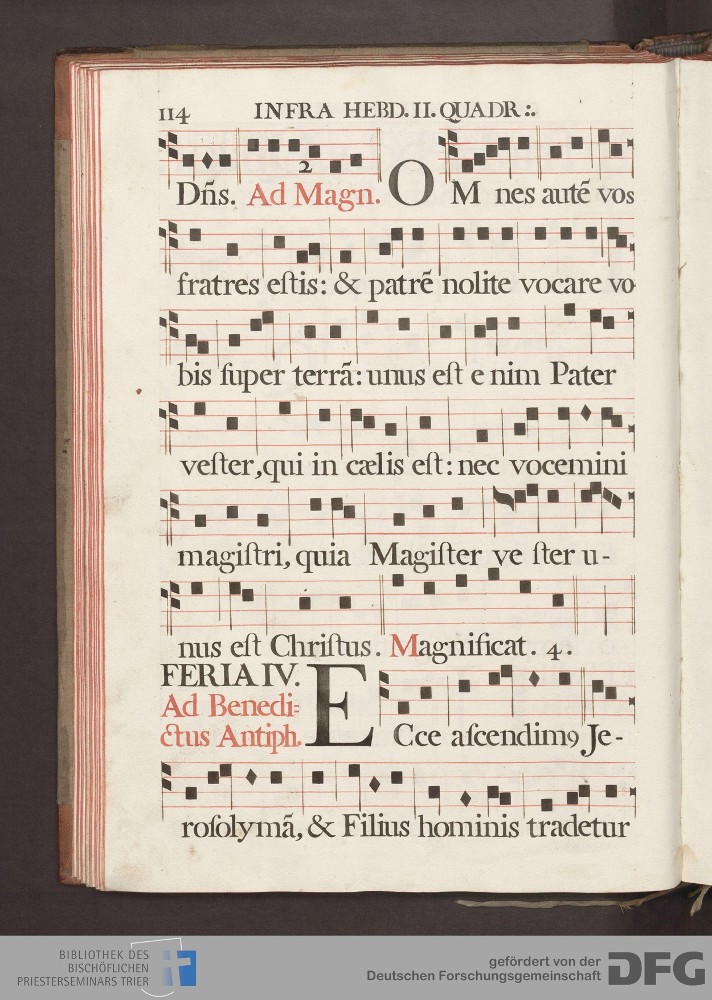 114 INFRA HEBD. II. QUADR :.
2
Dn̄s. Ad Magn. OM nes autē vos
fratres eſtis: & patrē nolite vocare vo
bis ſuper terrā: unus eſt e nim Pater
veſter, qui in cælis eſt: nec vocemini
magiſtri, quia Magiſter ve ſter u-
nus eſt Chriſtus. Magnificat. 4.
FERIA IV.
Ad Benedi=
ctus Antiph. ECce aſcendimꝰ Je-
roſolymā, & Filius hominis tradetur
BIBLIOTHEK DES
BISCHÖFLICHEN
PRIESTERSEMINARS TRIER
gefördert von der
Deutschen Forschungsgemeinschaft DFG